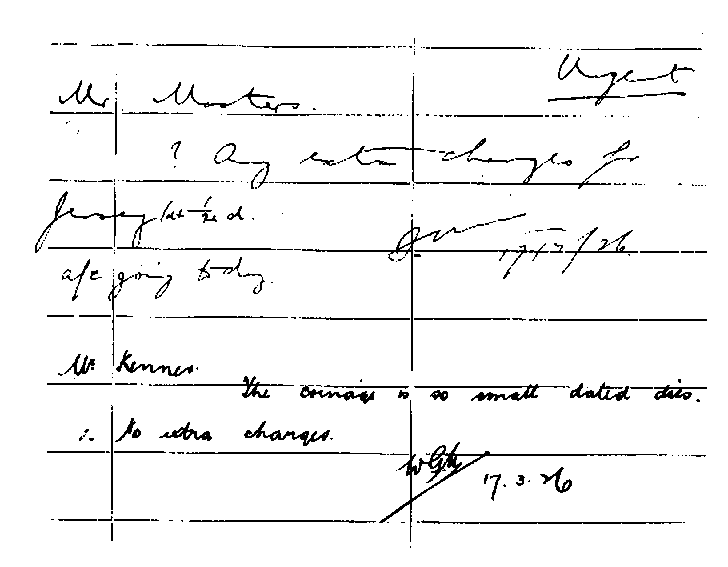 Urgent
Mr Masters.
? Any extra charges for
Jersey 1/24 d.
17/3/26
a/c going today.
Mr Kenner.
The coinage is so small dated dies.
∴ No extra charges.
17.3.26